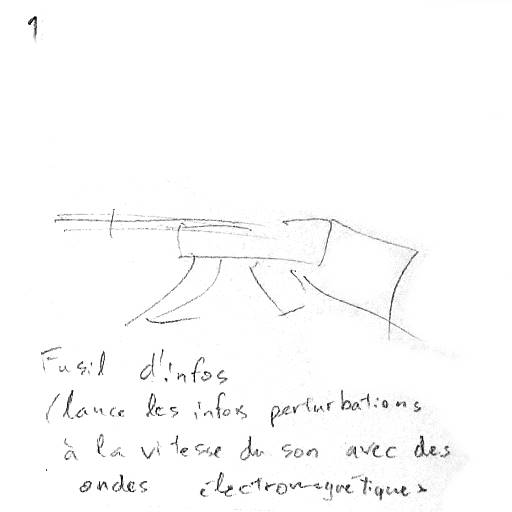 1
Fusil d'infos
(lance les infos perturbations
à la vitesse du son avec des
ondes électromagnétiques